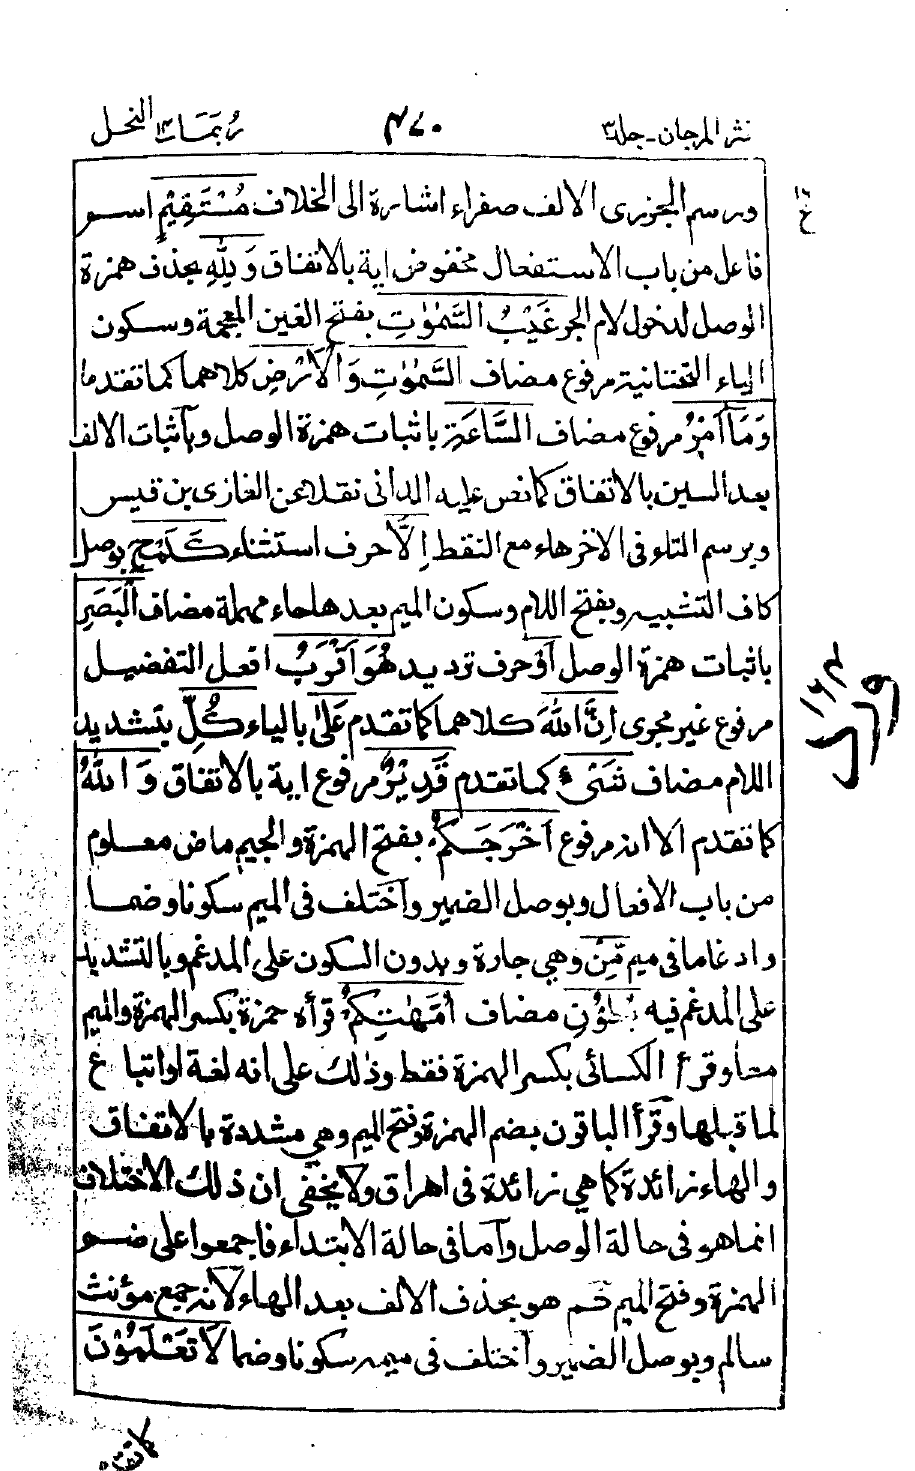 نثر المرجان-جلد٣ ٤٧٠ ربما١٤ النحل
ورسم الجزرى الالف صفراء اشارة الى الخلاف مُسْتَقِيْمٍ اسم
فاعل من باب الاستفعال مخفوض اية بالاتفاق وَلِلّٰهِ بحذف همزة
الوصل لدخول لام الجر غَيْبُ السَّمٰوٰتِ بفتح الغين المعجمة وسكون
الياء التحتانية مرفوع مضاف السَّمٰوٰتِ وَالْاَرْضِ كلاهما كما تقدما
وَمَآ اَمْرُ مرفوع مضاف السَّاعَةِ باثبات همزة الوصل وبآثبات الالف
بعد السين بالاتفاق كما نص عليه الدانى نقلا عن الغازى بن قيس
وبرسم التاء فى الاخرهاء مع النقط اِلَّا حرف استثناء كَلَمْحِ بوصل
كاف التشبيه وبفتح اللام وسكون الميم بعدها حاء مهملة مضاف الْبَصَرِ
باثبات همزة الوصل اَوْ حرف ترديد هُوَ اَقْرَبُ افعل التفضيل
مرفوع غير مجرى اِنَّ اللّٰهَ كلاهما كما تقدم عَلٰى بالياء كُلِّ بتشديد
اللام مضاف شَىْءٍ كما تقدم قَدِيْرٌ مرفوع اية بالاتفاق وَاللّٰهُ
كما تقدم الا انه مرفوع اَخْرَجَكُمْ بفتح الهمزة والجيم ماض معلوم
من باب الافعال وبوصل الضمير وآختلف فى الميم سكونا وضما
وادغاما فى ميم مِّنْ وهي جارة وبدون السكون على المدغم وبالتشديد
على المدغم فيه بُطُوْنِ مضاف اُمَّهٰتِكُمْ قرأه حمزة بكسر الهمزة والميم
معا وقرأ الكسائى بكسر الهمزة فقط وذلك على انه لغة او اتباع
لما قبلها وقرأ الباقون بضم الهمزة وفتح الميم وهي مشددة بالاتفاق
والهاء زائدة كما هي زائدة فى اهراق ولا يخفى ان ذلك الاختلاف
انما هو فى حالة الوصل وآما فى حالة الابتداء فاجمعوا على ضم
الهمزة وفتح الميم ثم هو بحذف الالف بعد الهاء لانه جمع مؤنث
سالم وبوصل الضمير وآختلف فى ميمه سكونا وضما لَا تَعْلَمُوْنَ